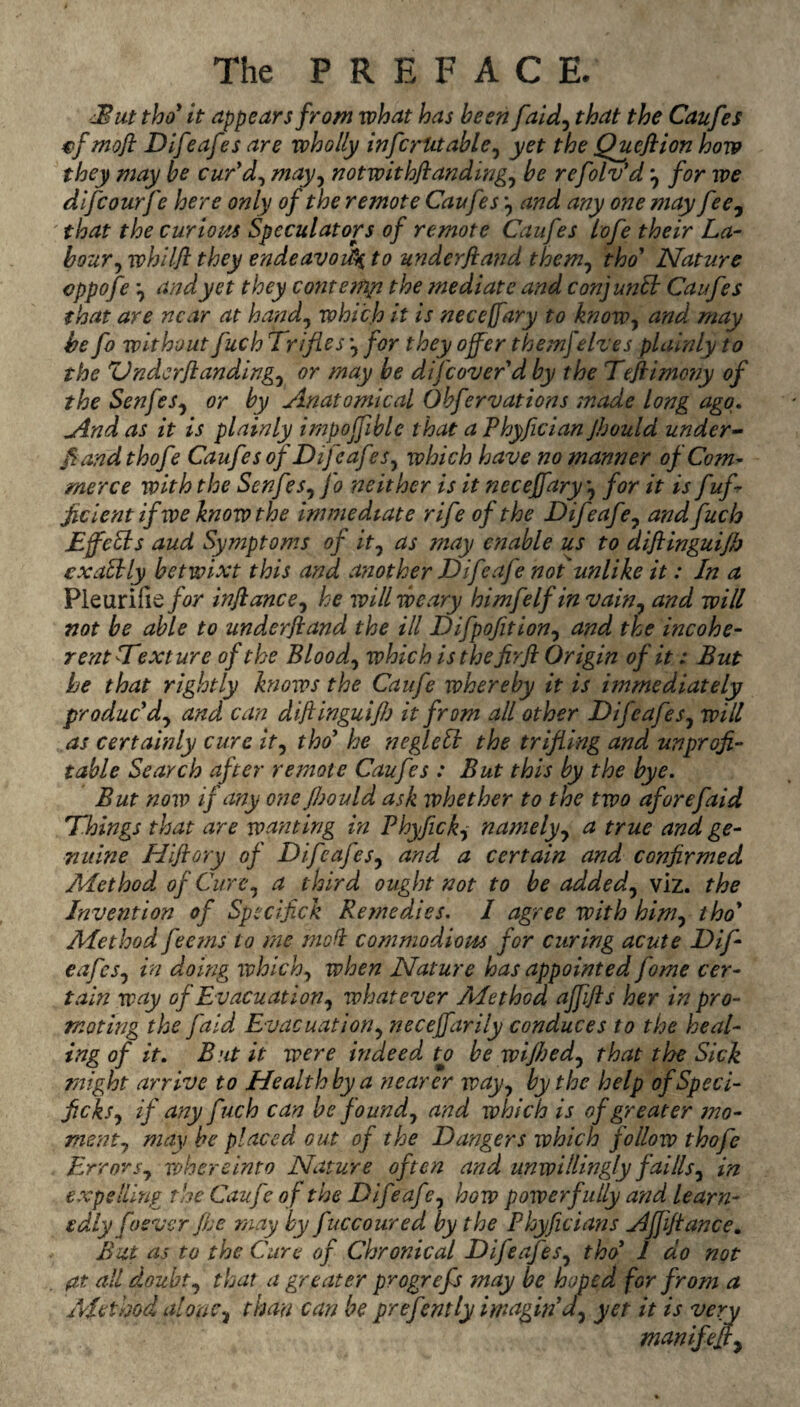 The PREFACE.
But tho' it appears from what has been ſaid, that the Cauſes
of moſt Diſeaſes are wholly inſcrutable, yet the Queſtion how
they may be cur'd, may, notwithſtanding, be reſolv'd; for we
diſcourſe here only of the remote Cauſes; and any one may ſee,
that the curious Speculators of remote Cauſes loſe their La-
bour, whilſt they endeavour to underſtand them, tho' Nature
oppoſe; and yet they contemn the mediate and conjunct Cauſes
that are near at hand, which it is neceſſary to know, and may
be ſo without ſuch Trifles; for they offer themſelves plainly to
the Underſtanding, or may be diſcover'd by the Teſtimony of
the Senſes, or by Anatomical Obſervations made long ago.
And as it is plainly impoſſible that a Phyſician ſhould under-
ſtand thoſe Cauſes of Diſeaſes, which have no manner of Com-
merce with the Senſes, ſo neither is it neceſſary; for it is ſuf-
ficient if we know the immediate riſe of the Diſeaſe, and ſuch
Effects aud Symptoms of it, as may enable us to diſtinguiſh
exactly betwixt this and another Diſeaſe not unlike it: In a
Pleuriſie for inſtance, he will weary himſelf in vain, and will
not be able to underſtand the ill Diſpoſition, and the incohe-
rent Texture of the Blood, which is the firſt Origin of it: But
he that rightly knows the Cauſe whereby it is immediately
produc'd, and can diſtinguiſh it from all other Diſeaſes, will
as certainly cure it, tho' he neglect the trifling and unprofi-
table Search after remote Cauſes: But this by the bye.
But now if any one ſhould ask whether to the two aforeſaid
Things that are wanting in Phyſick, namely, a true and ge-
nuine Hiſtory of Diſeaſes, and a certain and confirmed
Method of Cure, a third ought not to be added, viz. the
Invention of Specifick Remedies. I agree with him, tho'
Method ſeems to me moſt commodious for curing acute Diſ-
eaſes, in doing which, when Nature has appointed ſome cer-
tain way of Evacuation, whatever Method aſſiſts her in pro-
moting the ſaid Evacuation, neceſſarily conduces to the heal-
ing of it. But it were indeed to be wiſhed, that the Sick
might arrive to Health by a nearer way, by the help of Speci-
ficks, if any ſuch can be found, and which is of greater mo-
ment, may be placed out of the Dangers which follow thoſe
Errors, whereinto Nature often and unwillingly faills, in
expelling the Cauſe of the Diſeaſe, how powerfully and learn-
edly ſoever ſhe may by ſuccoured by the Phyſicians Aſſiſtance.
But as to the Cure of Chronical Diſeaſes, tho' I do not
at all doubt, that a greater progreſs may be hoped for from a
Method alone, than can be preſently imagin'd, yet it is very
manifeſt,